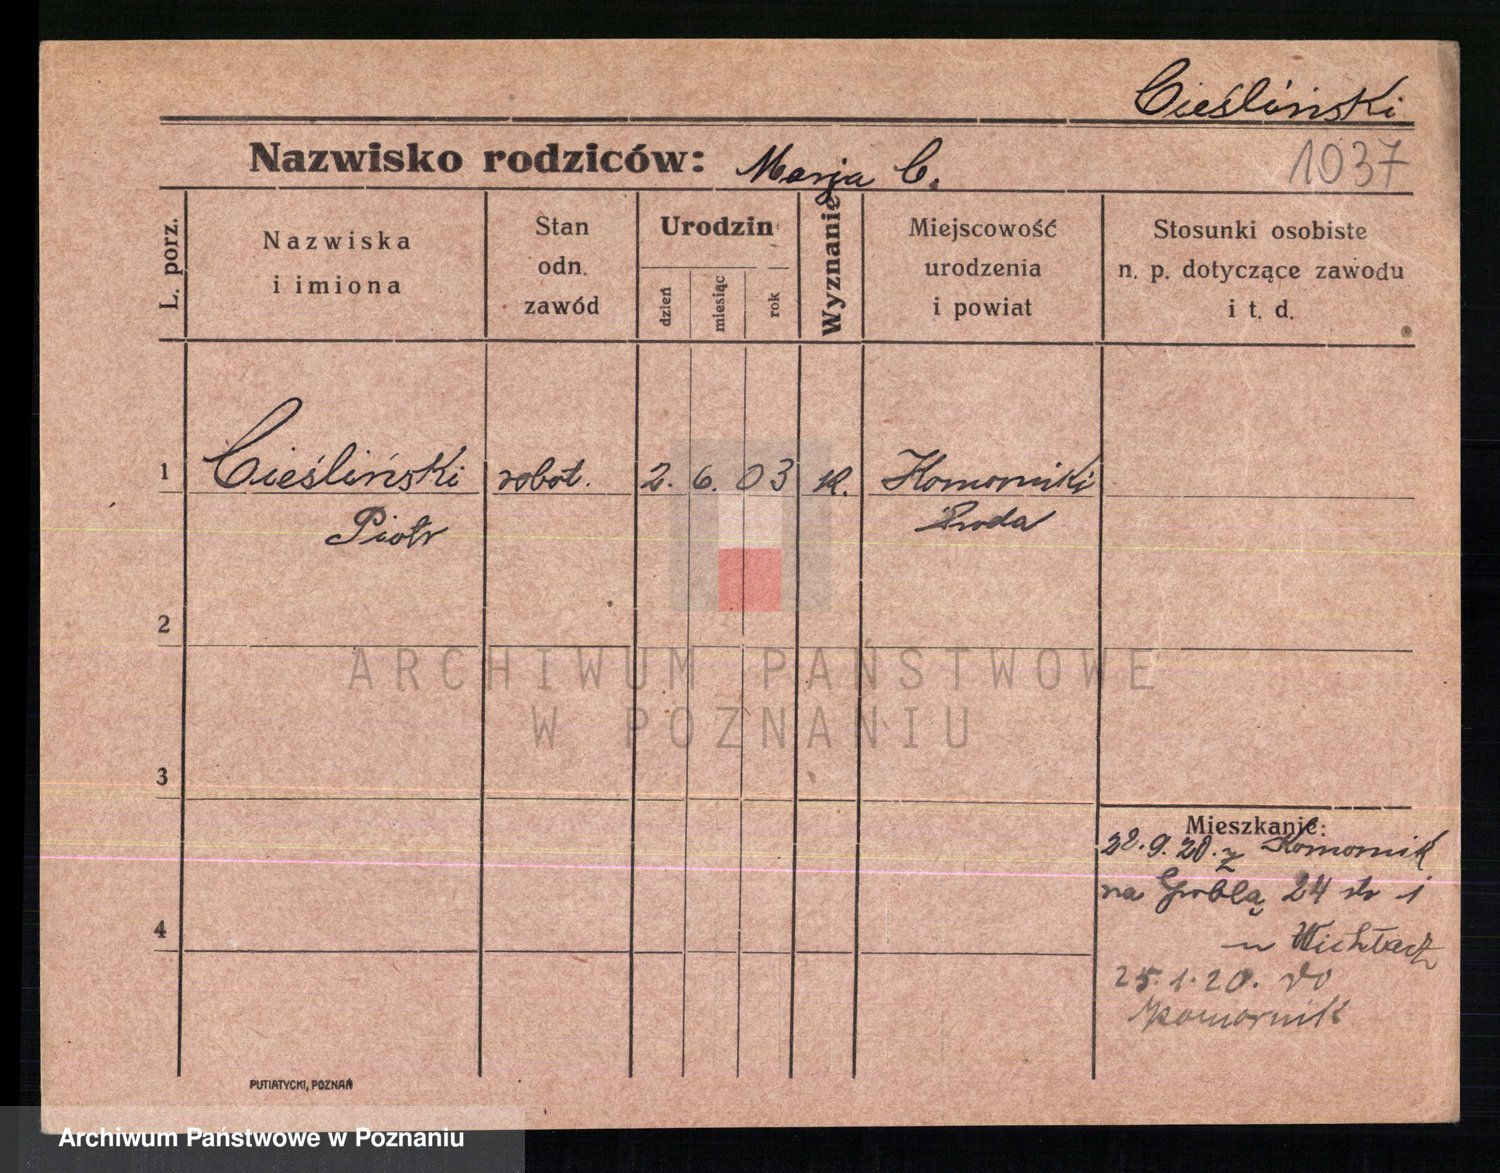 Cieśliński
Nazwisko rodziców: Marja C.
1037
L. porz.
Nazwiska
i imiona
Stan
odn.
zawód
Urodzin
dzień
miesiąc
rok
Wyznanie
Miejscowość
urodzenia
i powiat
Stosunki osobiste
n. p. dotyczące zawodu
i t. d.
1 Cieśliński robot. 2. 6. 03 K. Komorniki
Piotr Środa
2
ARCHIWUM PAŃSTWOWE
W POZNANIU
3
Mieszkanie:
22.9.20. z Komornik
na Groblą 24 ptr i
u Wichłacz
4
25.1.20. do
Komornik
PUTIATYCKI, POZNAŃ
Archiwum Państwowe w Poznaniu